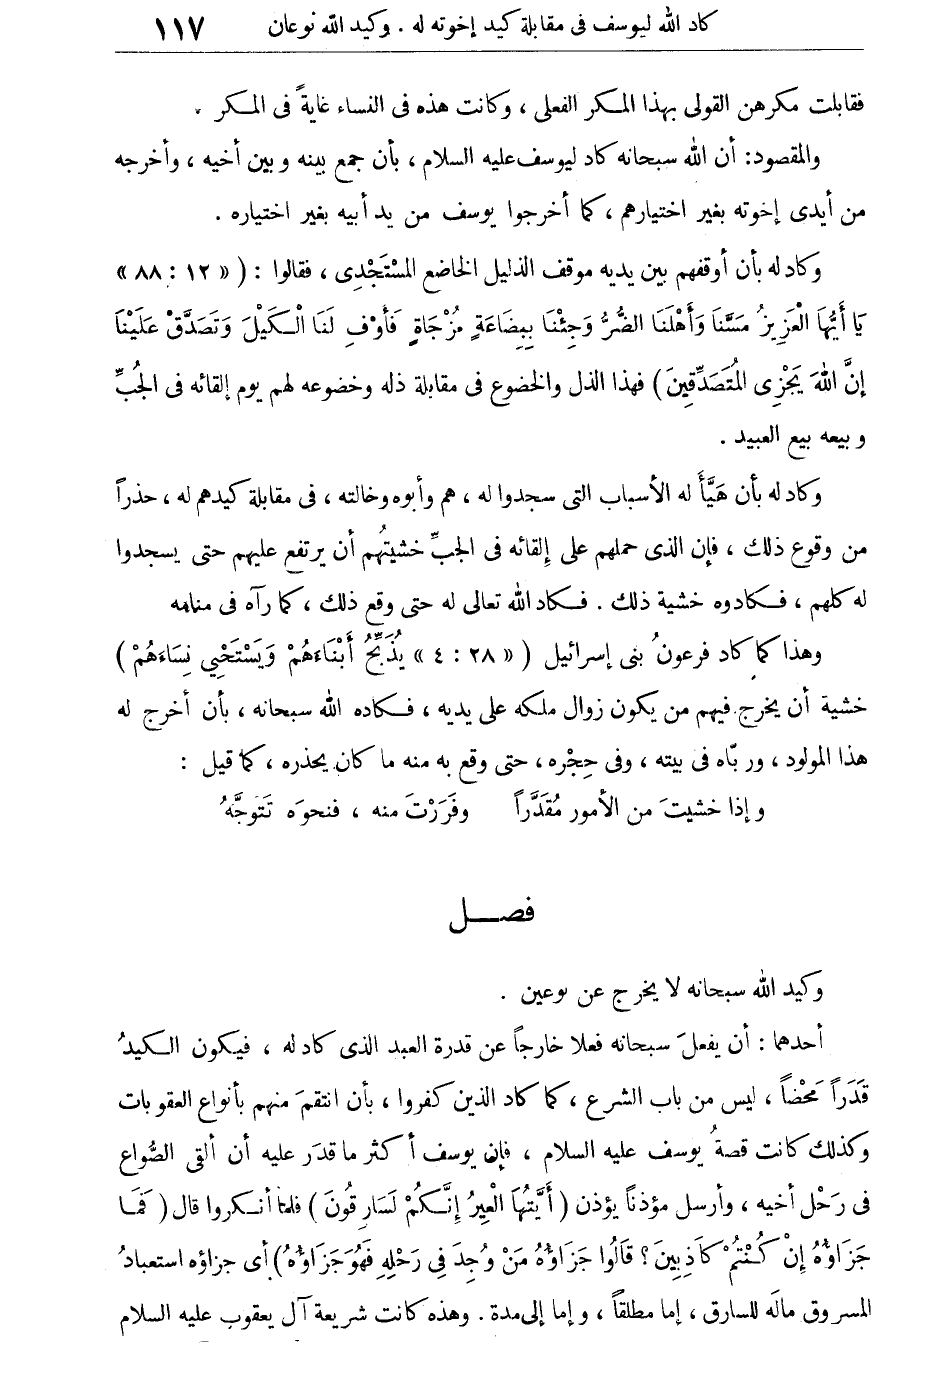 كاد الله ليوسف فى مقابلة كيد إخوته له . وكيد الله نوعان ١١٧
فقابلت مكرهن القولى بهذا المكر الفعلى ، وكانت هذه فى النساء غايةً فى المكر .
والمقصود: أن الله سبحانه كاد ليوسف عليه السلام ، بأن جمع بينه وبين أخيه ، وأخرجه
من أيدى إخوته بغير اختيارهم ، كما أخرجوا يوسف من يد أبيه بغير اختياره .
وكاد له بأن أوقفهم بين يديه موقف الذليل الخاضع المسْتَجْدِى ، فقالوا : ( « ١٢ : ٨٨ »
يَا أَيُّهَا الْعَزِيزُ مَسَّنَا وَأَهْلَنَا الضُّرُّ وَجِئْنَا بِبِضَاعَةٍ مُزْجَاةٍ فَأَوْفِ لَنَا الْكَيْلَ وَتَصَدَّقْ عَلَيْنَا
إنَّ اللهَ يَجْزِى الْمُتَصَدِّقِينَ ) فهذا الذل والخضوع فى مقابلة ذله وخضوعه لهم يوم إلقائه فى الجُبِّ
وبيعه بيع العبيد .
وكاد له بأن هَيَّأَ له الأسباب التى سجدوا له ، هم وأبوه وخالته ، فى مقابلة كيدهم له ، حذراً
من وقوع ذلك ، فإن الذى حملهم على إلقائه فى الجبِّ خشيتُهم أن يرتفع عليهم حتى يسجدوا
له كلهم ، فكادوه خشية ذلك . فكاد الله تعالى له حتى وقع ذلك ، كما رآه فى منامه
وهذا كما كاد فرعونُ بنى إسرائيل ( « ٢٨ : ٤ » يُذَبِّحُ أَبْنَاءَهُمْ وَيَسْتَحْيِي نِسَاءَهُمْ )
خشية أن يخرج فيهم من يكون زوال ملكه على يديه ، فكاده الله سبحانه ، بأن أخرج له
هذا المولود ، وربّاه فى بيته ، وفى حِجْره ، حتى وقع به منه ما كان يحذره ، كما قيل :
وإذا خشيتَ من الأمور مُقَدَّراً وفَرَرْتَ منه ، فنحوَه تَتَوجَّهُ
فصل
وكيد الله سبحانه لا يخرج عن نوعين .
أحدهما : أن يفعلَ سبحانه فعلا خارجاً عن قدرة العبد الذى كاد له ، فيكون الكيدُ
قَدَراً مَحْضاً ، ليس من باب الشرع ، كما كاد الذين كفروا ، بأن انتقمَ منهم بأنواع العقوبات
وكذلك كانت قصةُ يوسف عليه السلام ، فإن يوسف أكثر ما قدَر عليه أن ألقى الصُّواع
فى رَحْل أخيه ، وأرسل مؤذناً يؤذن ( أَيَّتُهَا الْعِيرُ إِنَّكُمْ لَسَارِقُونَ ) فلما أنكروا قال ( فَمَا
جَزَاؤُهُ إنْ كُنْتُمْ كَاذِبِينَ ؟ قَالُوا جَزَاؤُهُ مَنْ وُجِدَ فِي رَحْلِهِ فَهُوَ جَزَاؤُهُ ) أى جزاؤه استعبادُ
المسروق مالَه للسارق ، إما مطلقاً ، وإما إلى مدة . وهذه كانت شريعة آل يعقوب عليه السلام